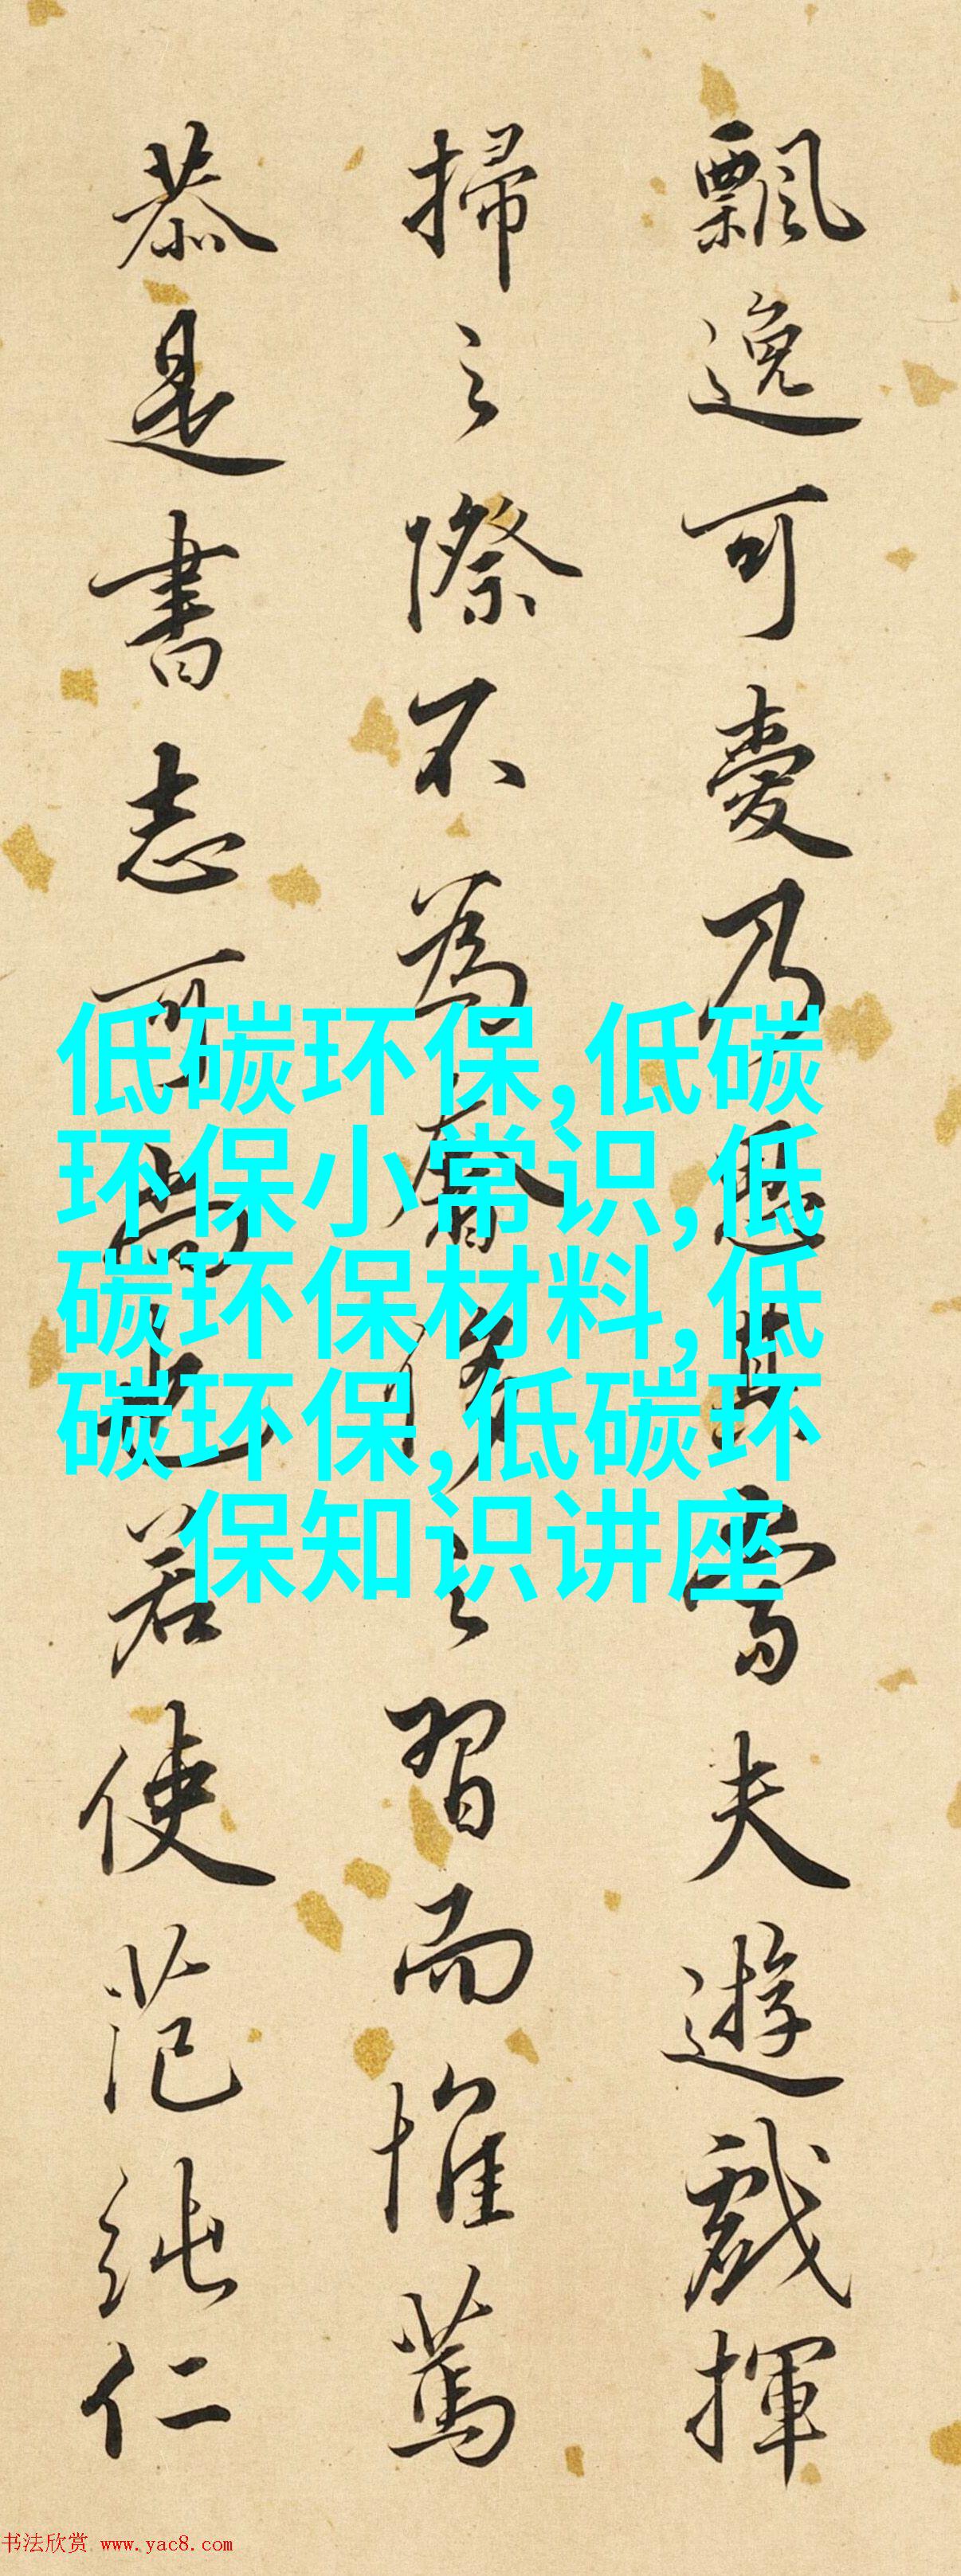 飄逸可愛乃其夫遊戲揮
掃之際不為奢侈之習而惟篤
恭是書志可尚也若使范純仁
低碳环保,低碳
环保小常识,低
碳环保材料,低
碳环保,低碳环
保知识讲座
书法欣赏 www.yac8.com